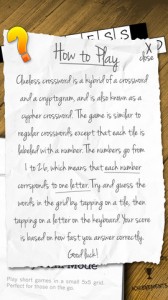 ?
How to Play
X
close
Clueless crossword is a hybrid of a crossword
and a cryptogram, and is also known as a
cypher crossword. The game is similar to
regular crosswords except that each tile is
labeled with a number. The numbers go from
1 to 26, which means that each number
corrsponds to one letter. Try and guess the
words in the grid by tapping on a tile, then
tapping on a letter on the keyboard. Your score
is based on how fast you answer correctly.
Good luck!
Mode
Play short games in a small 8x8 grid.
Perfect for those on the go.